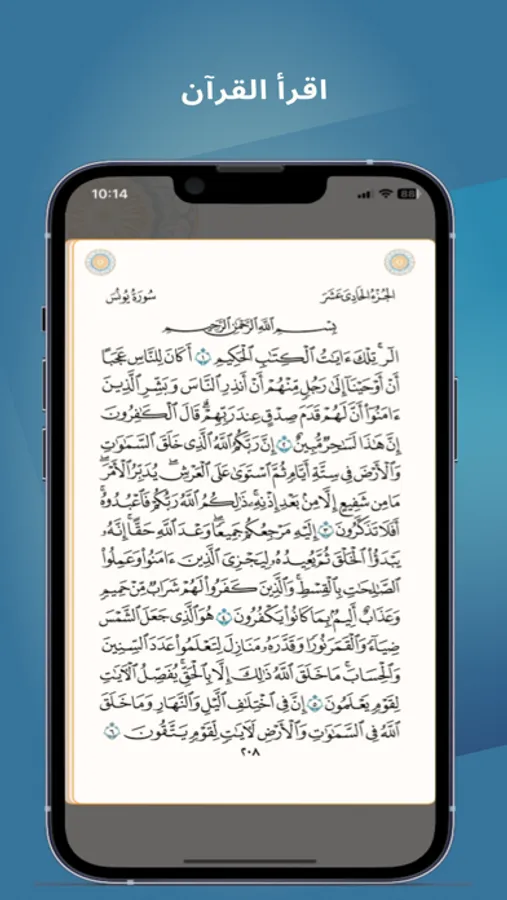 اقرأ القرآن
10:14
88
الجُزْءُ الحَادِي عَشَرَ
سُورَةُ يُونُسَ
بِسْمِ اللَّهِ الرَّحْمَٰنِ الرَّحِيمِ
الٓر ۚ تِلْكَ ءَايَٰتُ ٱلْكِتَٰبِ ٱلْحَكِيمِ ١ أَكَانَ لِلنَّاسِ عَجَبًا
أَنْ أَوْحَيْنَآ إِلَىٰ رَجُلٍ مِّنْهُمْ أَنْ أَنذِرِ ٱلنَّاسَ وَبَشِّرِ ٱلَّذِينَ
ءَامَنُوٓا۟ أَنَّ لَهُمْ قَدَمَ صِدْقٍ عِندَ رَبِّهِمْ ۗ قَالَ ٱلْكَٰفِرُونَ
إِنَّ هَٰذَا لَسَٰحِرٌ مُّبِينٌ ٢ إِنَّ رَبَّكُمُ ٱللَّهُ ٱلَّذِى خَلَقَ ٱلسَّمَٰوَٰتِ
وَٱلْأَرْضَ فِى سِتَّةِ أَيَّامٍ ثُمَّ ٱسْتَوَىٰ عَلَى ٱلْعَرْشِ ۖ يُدَبِّرُ ٱلْأَمْرَ ۖ
مَا مِن شَفِيعٍ إِلَّا مِنۢ بَعْدِ إِذْنِهِۦ ۚ ذَٰلِكُمُ ٱللَّهُ رَبُّكُمْ فَٱعْبُدُوهُ ۚ
أَفَلَا تَذَكَّرُونَ ٣ إِلَيْهِ مَرْجِعُكُمْ جَمِيعًا ۖ وَعْدَ ٱللَّهِ حَقًّا ۚ إِنَّهُۥ
يَبْدَؤُا۟ ٱلْخَلْقَ ثُمَّ يُعِيدُهُۥ لِيَجْزِىَ ٱلَّذِينَ ءَامَنُوا۟ وَعَمِلُوا۟
ٱلصَّٰلِحَٰتِ بِٱلْقِسْطِ ۚ وَٱلَّذِينَ كَفَرُوا۟ لَهُمْ شَرَابٌ مِّنْ حَمِيمٍ
وَعَذَابٌ أَلِيمٌۢ بِمَا كَانُوا۟ يَكْفُرُونَ ٤ هُوَ ٱلَّذِى جَعَلَ ٱلشَّمْسَ
ضِيَآءً وَٱلْقَمَرَ نُورًا وَقَدَّرَهُۥ مَنَازِلَ لِتَعْلَمُوا۟ عَدَدَ ٱلسِّنِينَ
وَٱلْحِسَابَ ۚ مَا خَلَقَ ٱللَّهُ ذَٰلِكَ إِلَّا بِٱلْحَقِّ ۚ يُفَصِّلُ ٱلْءَايَٰتِ
لِقَوْمٍ يَعْلَمُونَ ٥ إِنَّ فِى ٱخْتِلَٰفِ ٱلَّيْلِ وَٱلنَّهَارِ وَمَا خَلَقَ
ٱللَّهُ فِى ٱلسَّمَٰوَٰتِ وَٱلْأَرْضِ لَءَايَٰتٍ لِّقَوْمٍ يَتَّقُونَ ٦
٢٠٨